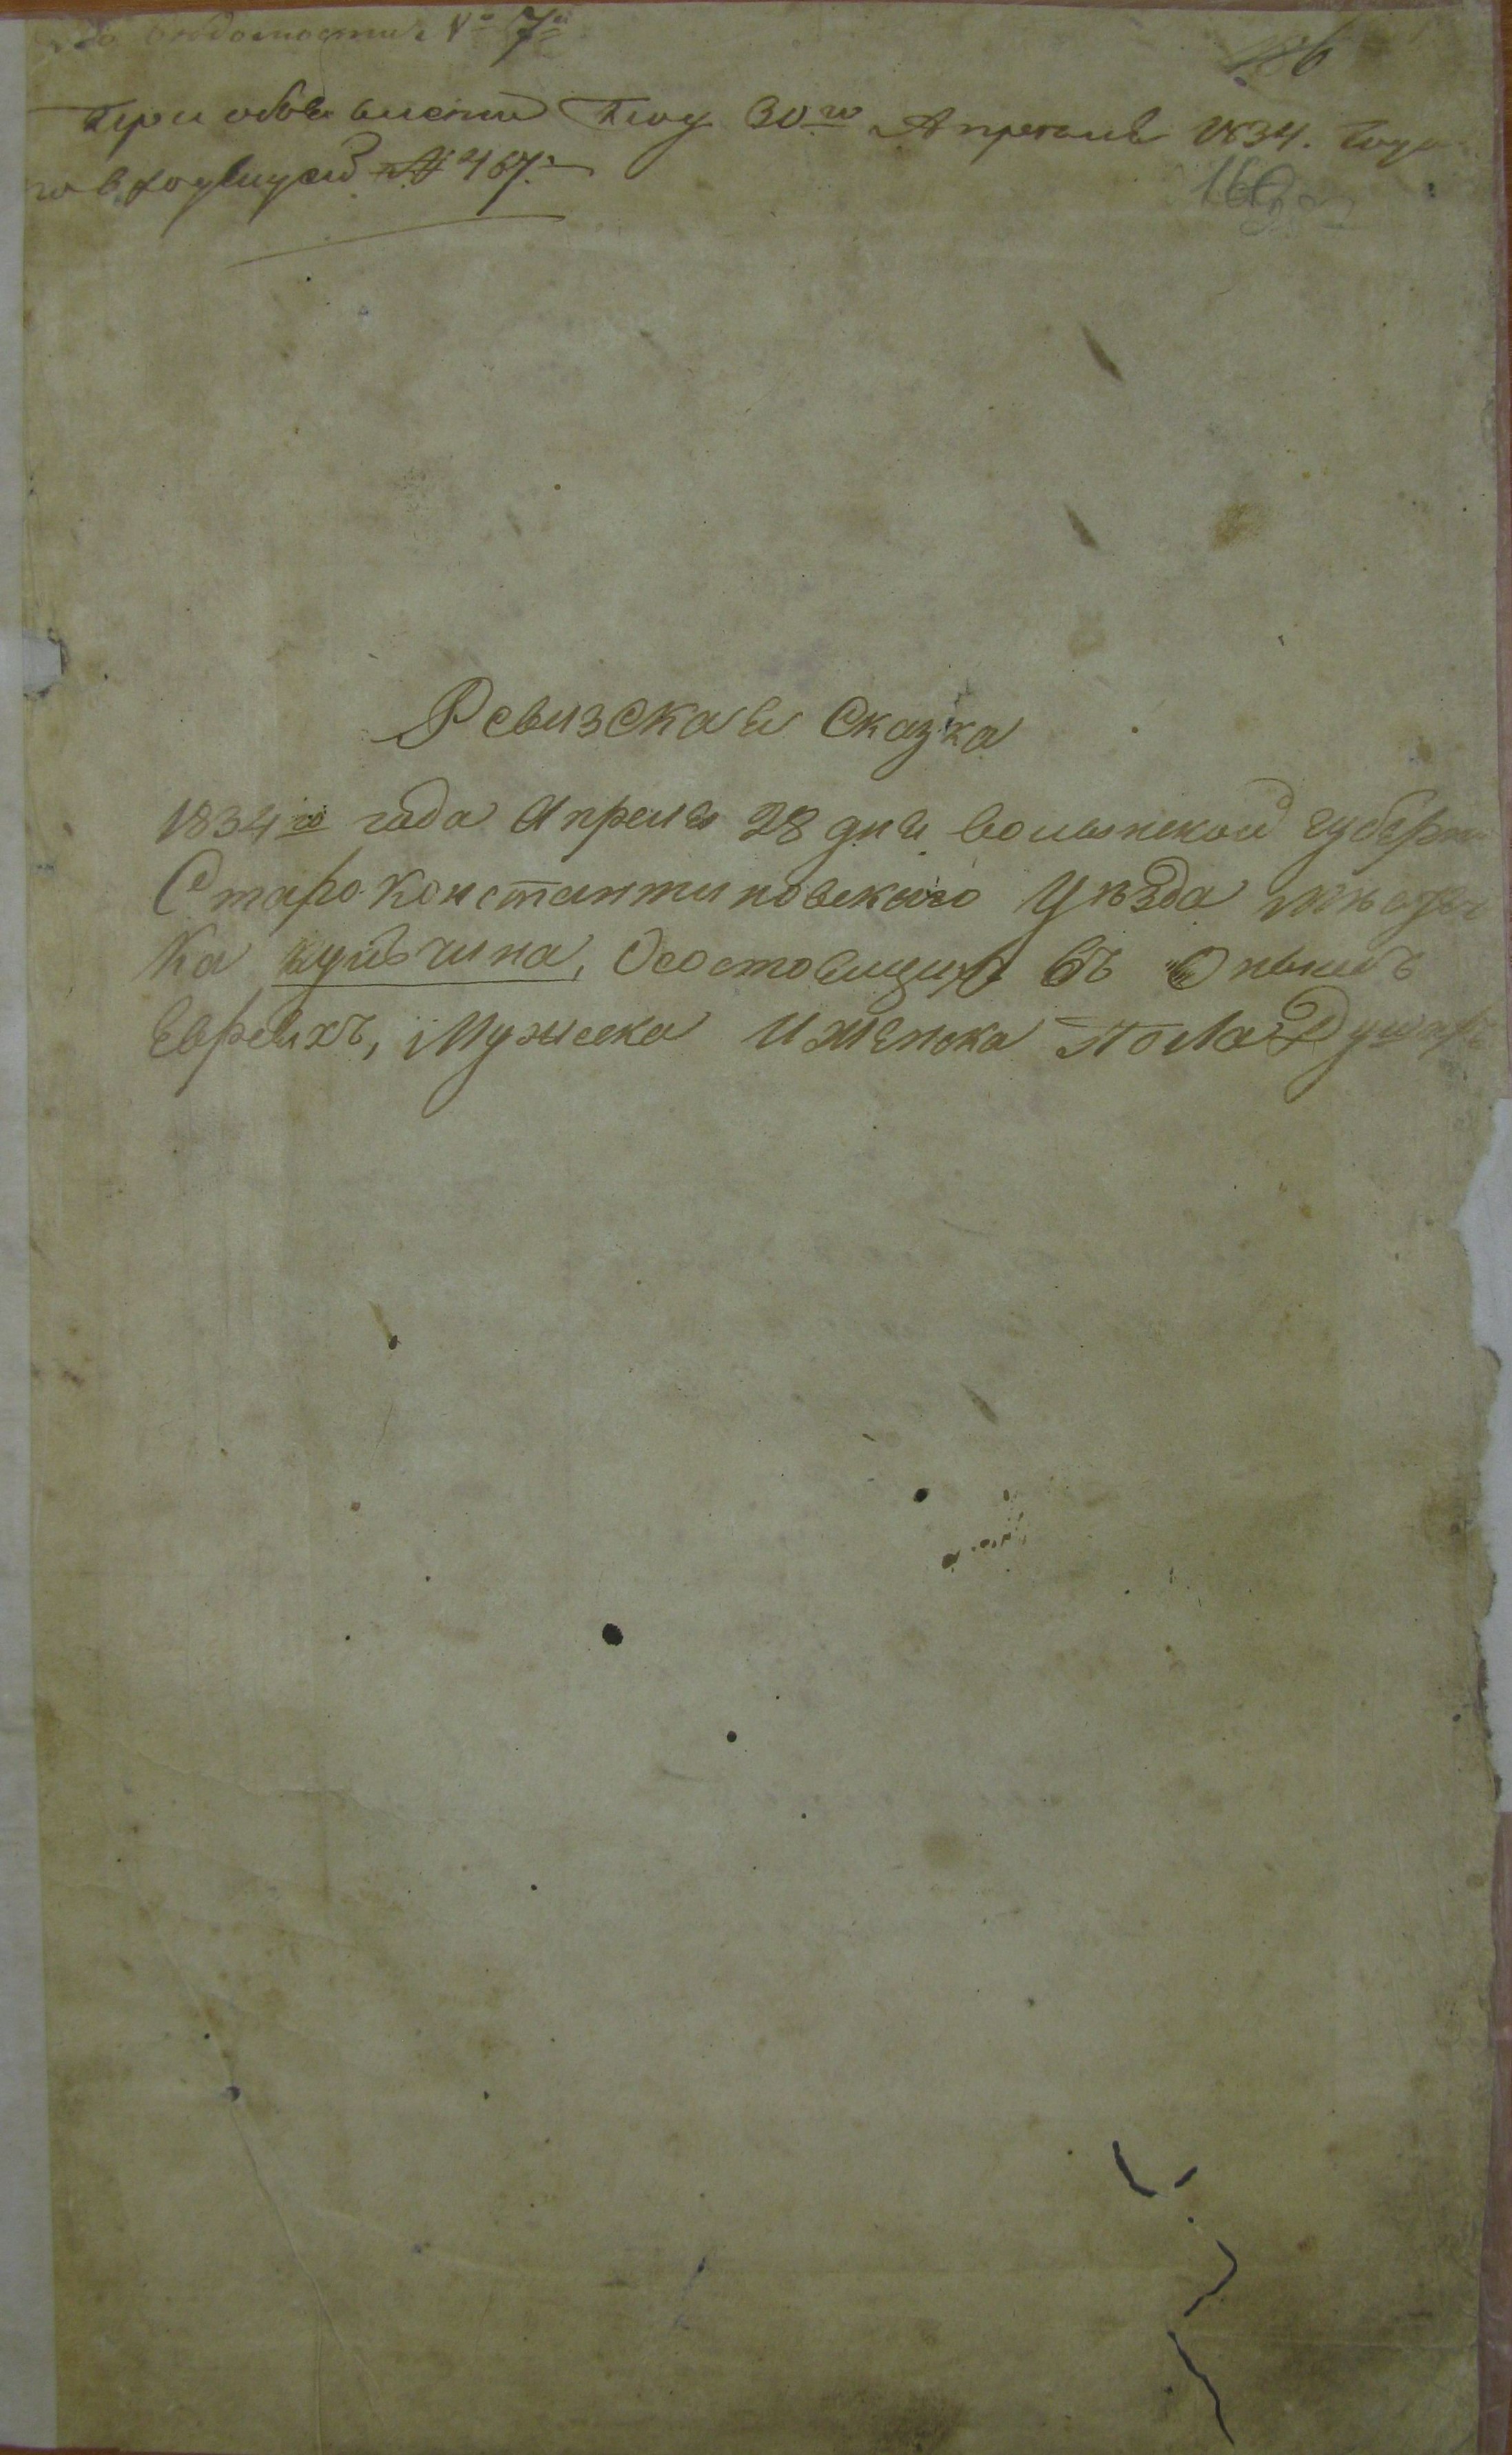 ведомости № 7й
186
При объявлении Под 30го Апреля 1834. года
по входящей № 467.
Ревизская Сказка
1834го года Апреля 28 дня волынской губерн
Староконстантинowского Уѣзда мѣстеч
ка куйчина, Осостоящихъ въ Ономъ
Евреяхъ, Мужеска И женска Пола Душахъ